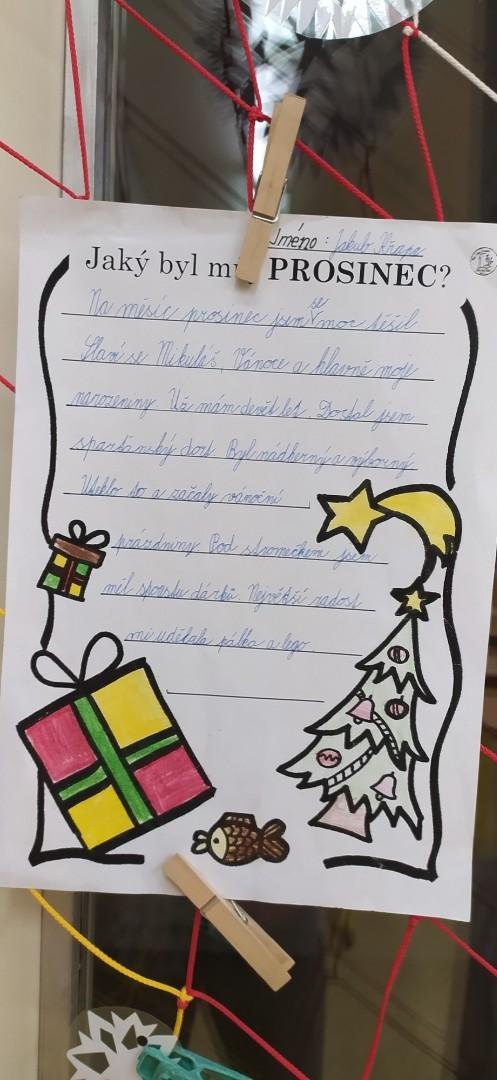 Jméno : Jakub
Jaký byl m PROSINEC?
Na měsíc prosinec jsem se moc těšil
Slaví se Mikuláš, Vánoce a hlavně moje
narozeniny. Už mám devět let. Dostal jsem
spartánský dort. Byl nádherný a výborný.
Uteklo to a začaly vánoční
prázdniny. Pod stromečkem jsem
měl spoustu dárků. Největší radost
mi udělala pálka a lego.